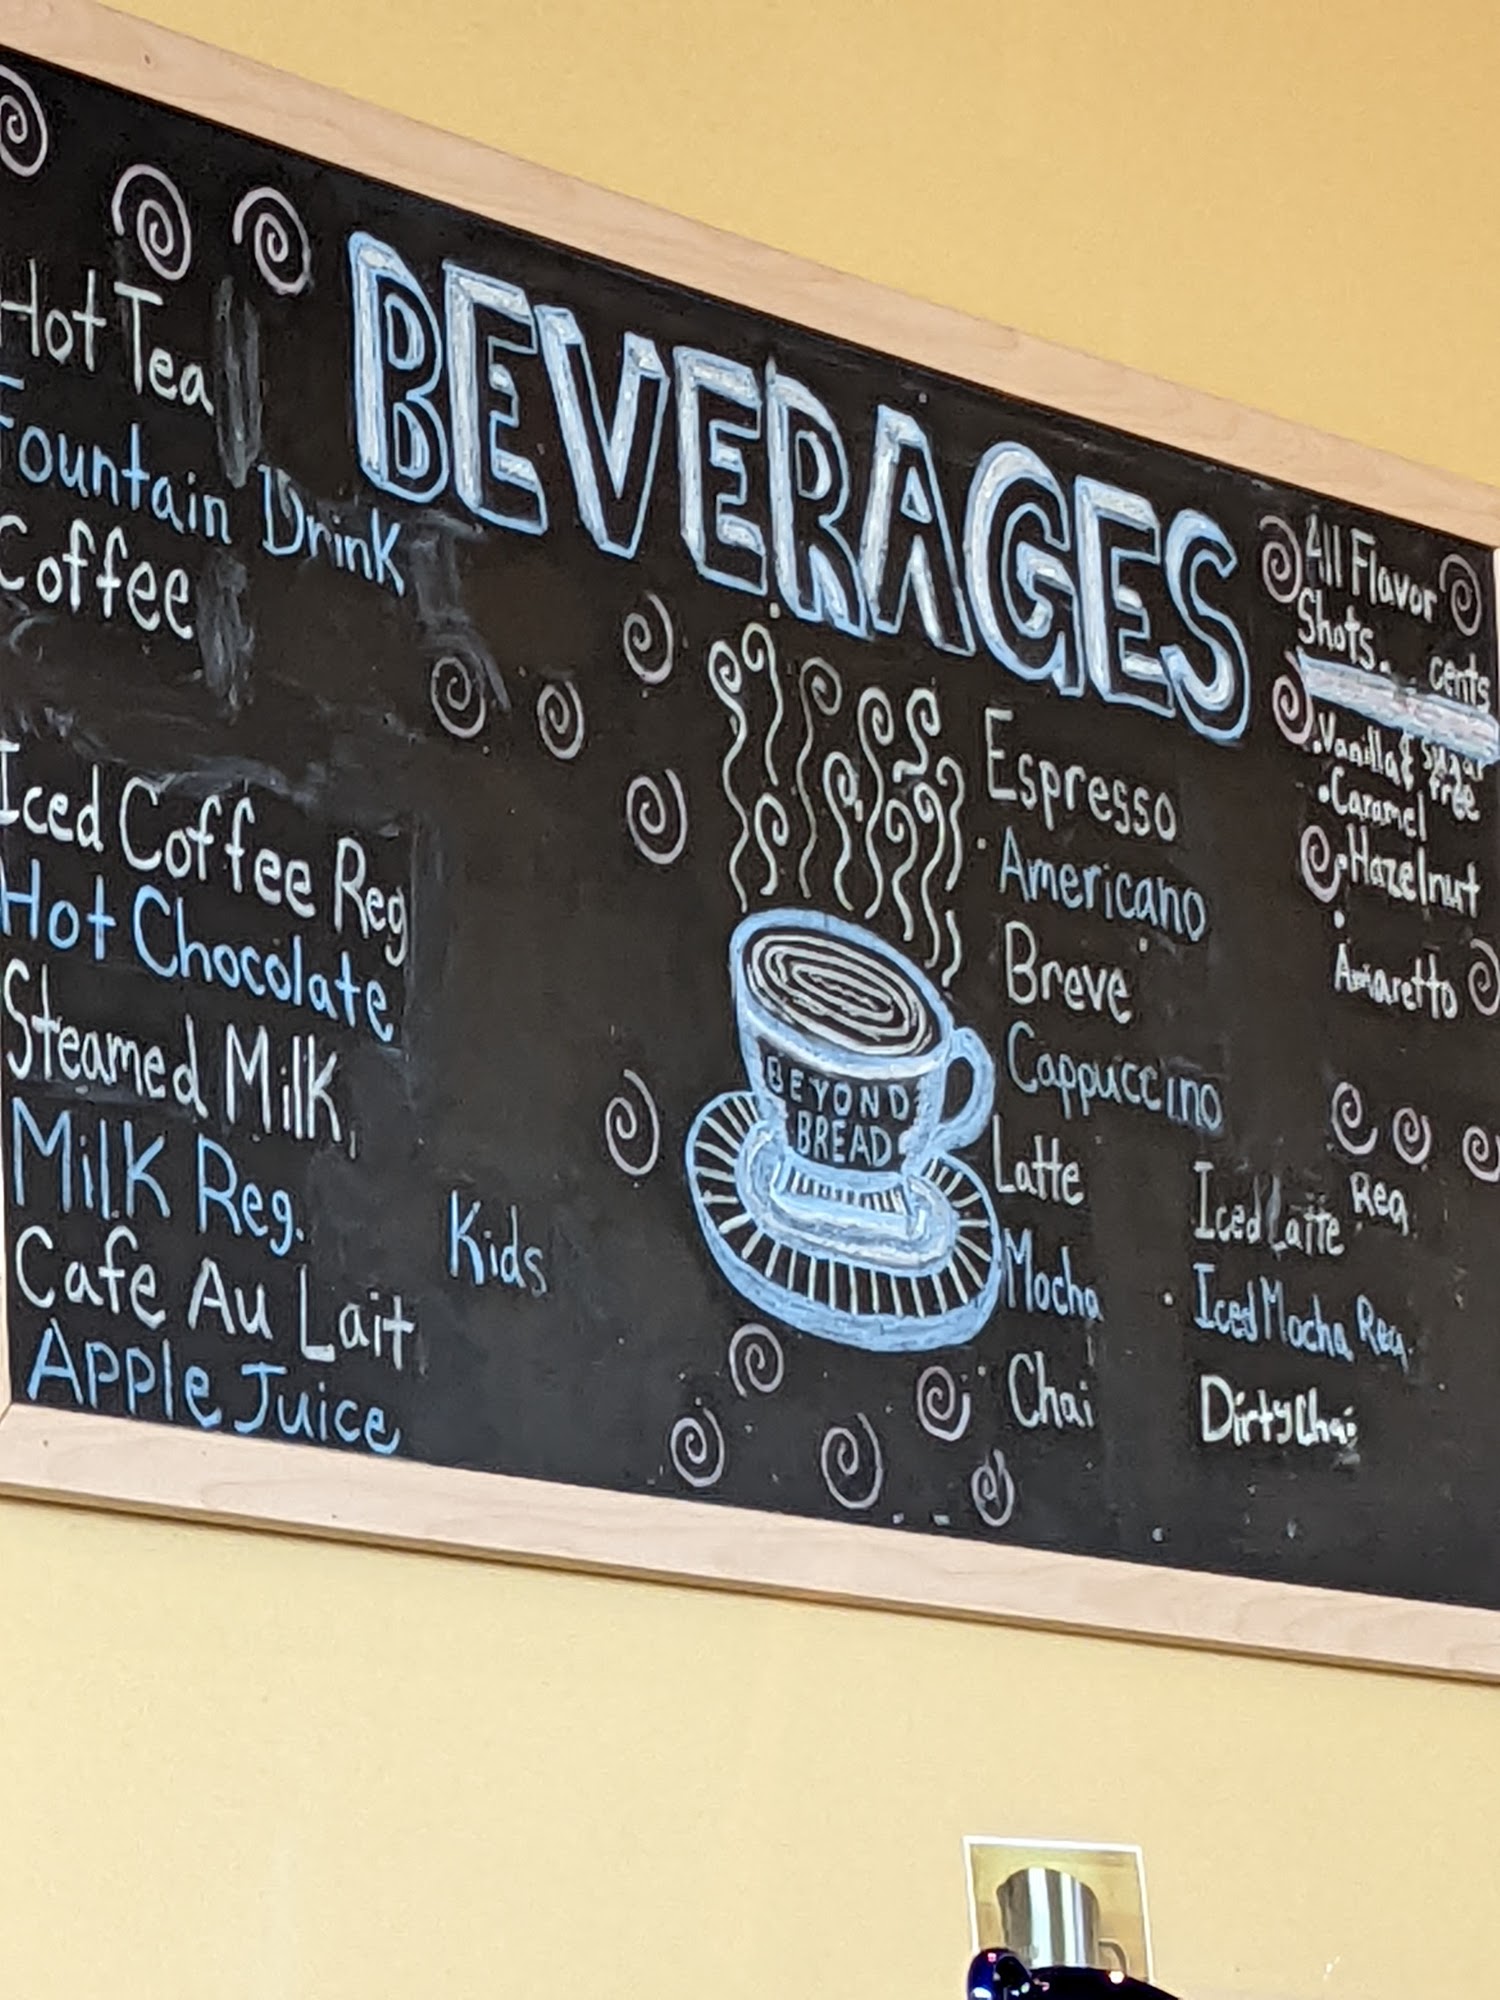 BEVERAGES
Hot Tea
Fountain Drink
Coffee
Iced Coffee Reg
Hot Chocolate
Steamed Milk
Milk Reg. Kids
Cafe Au Lait
Apple Juice
BEYOND
BREAD
Espresso
Americano
Breve
Cappuccino
Latte
Mocha
Chai
Iced Latte Reg
Iced Mocha Reg.
Dirty Chai
All Flavor
Shots. cents
Vanilla & Sugar free
Caramel
Hazelnut
Amaretto